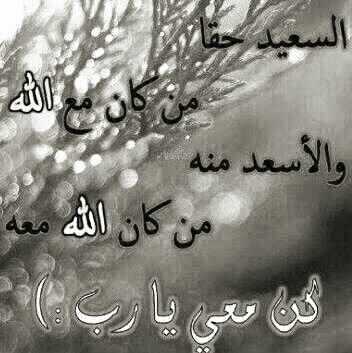 السعيد حقا
من كان مع الله
والأسعد منه
من كان الله معه
كن معي يا رب :)